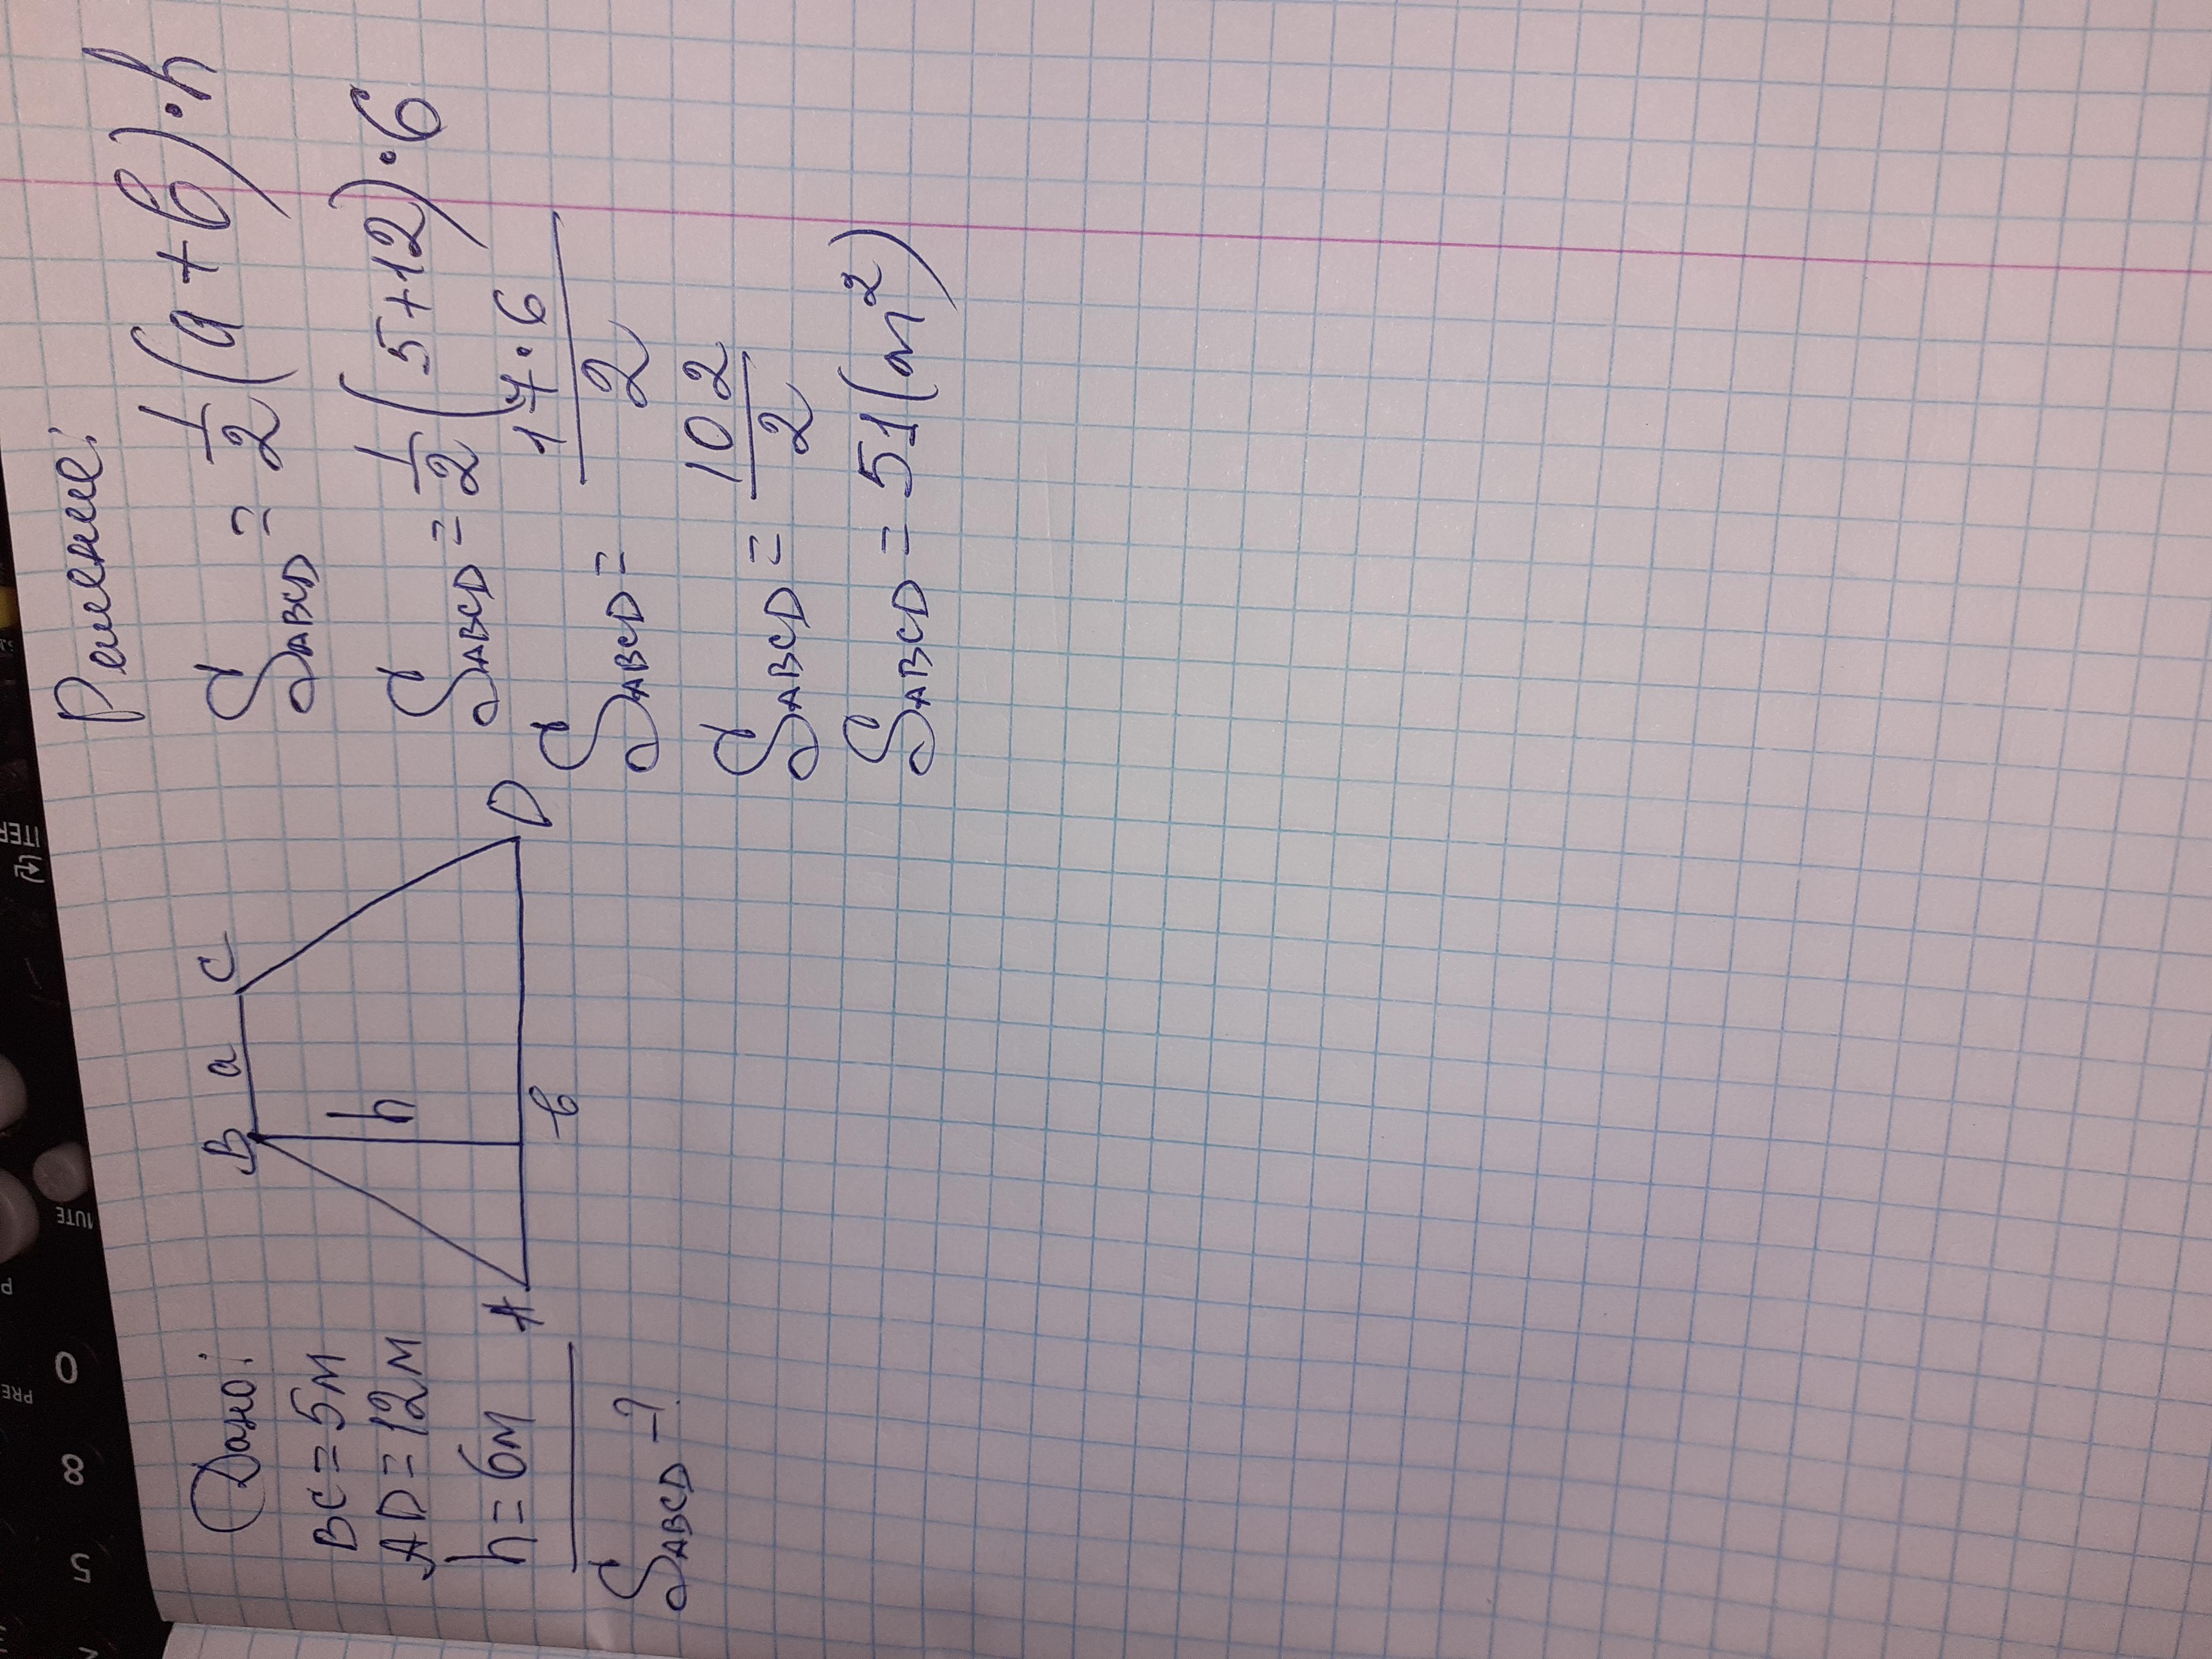 Дано:
BC = 5м
AD = 12м
h = 6м
S ABCD - ?
B a C
h
A в D
Решение:
S ABCD = 1/2 (a + в) · h
S ABCD = 1/2 (5+12) · 6
S ABCD = 17·6/2
S ABCD = 102/2
S ABCD = 51 (м²)
MUTE
PRE
0
8
5